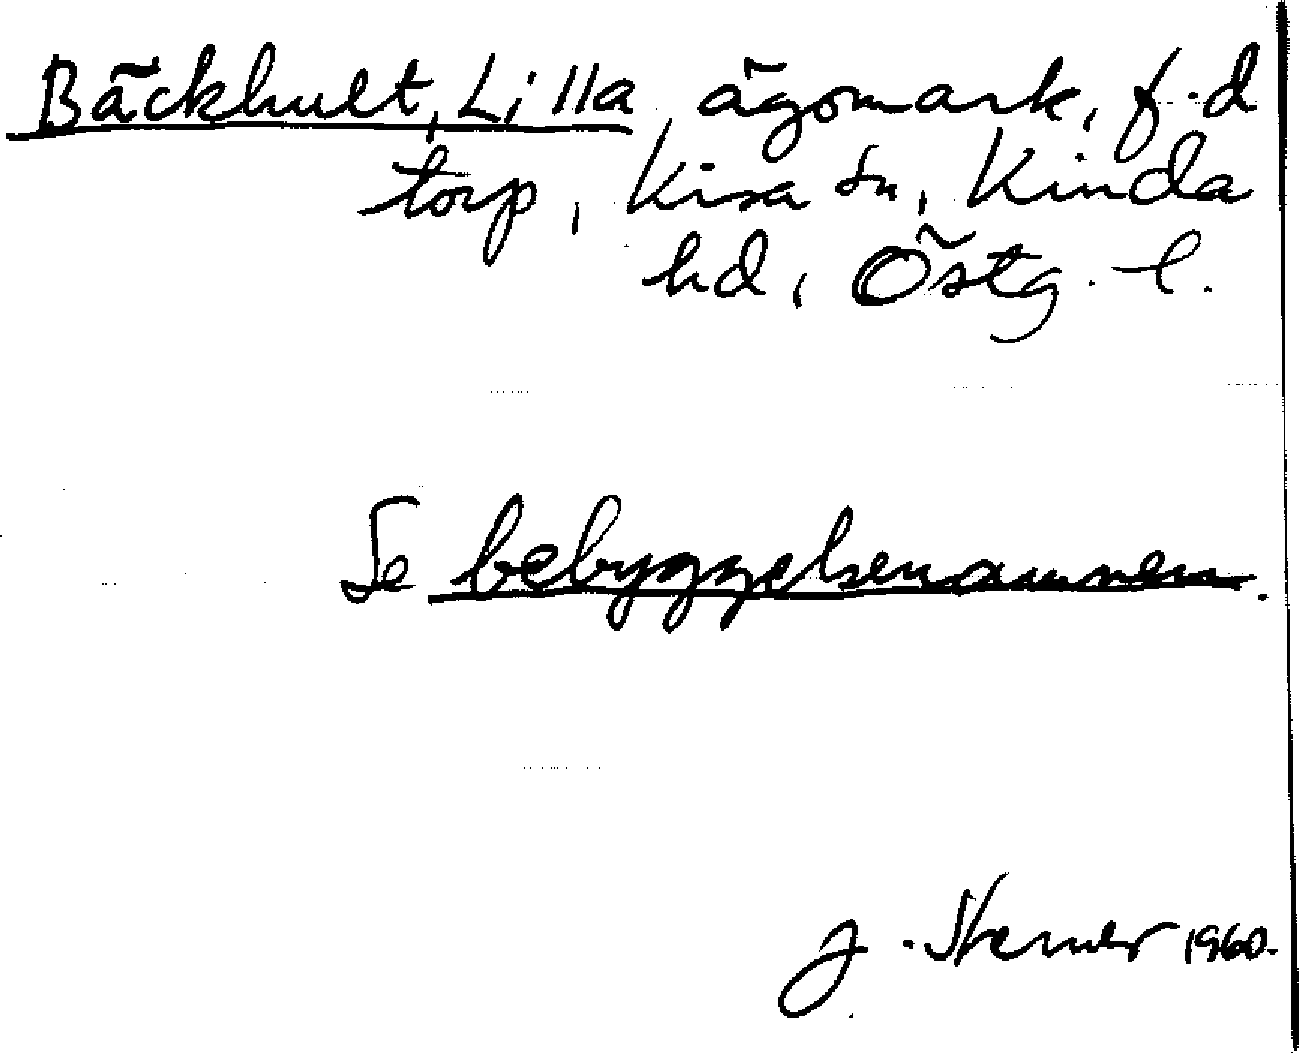 Bäckhult, Lilla, ägomark, f.d
torp, Kisa sn, Kinda
hd, Östg. l.
Se bebyggelsenamnen.
J. Sterner 1960.